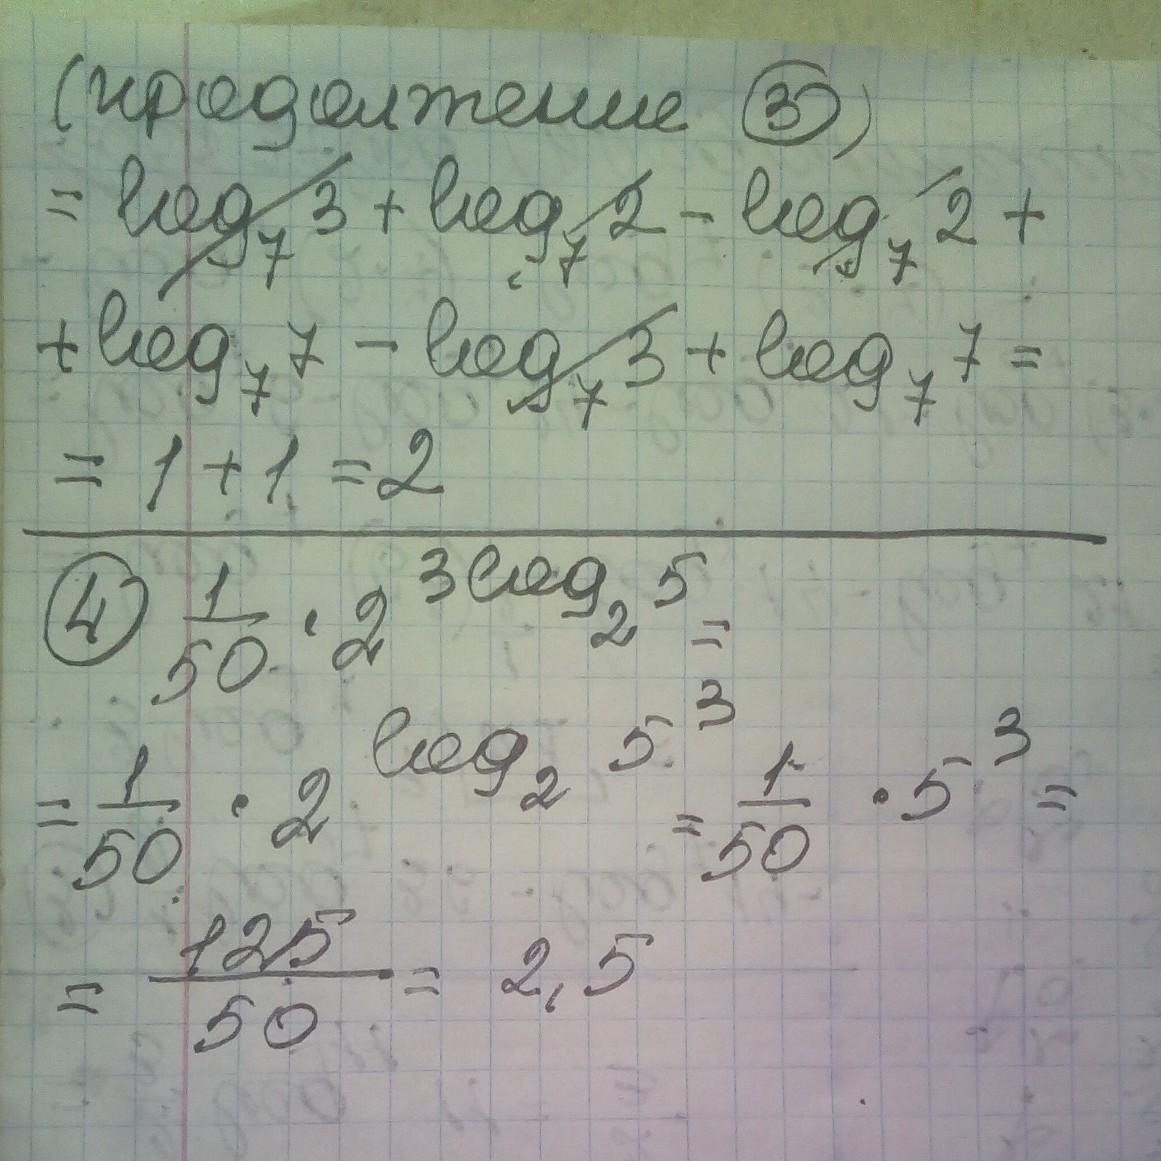 (продолжение ③)
= log₇ 3 + log₇ 2 - log₇ 2 +
+ log₇ 7 - log₇ 3 + log₇ 7 =
= 1 + 1 = 2
④ 1/50 · 2^(3log₂ 5) =
= 1/50 · 2^(log₂ 5³) = 1/50 · 5³ =
= 125/50 = 2,5